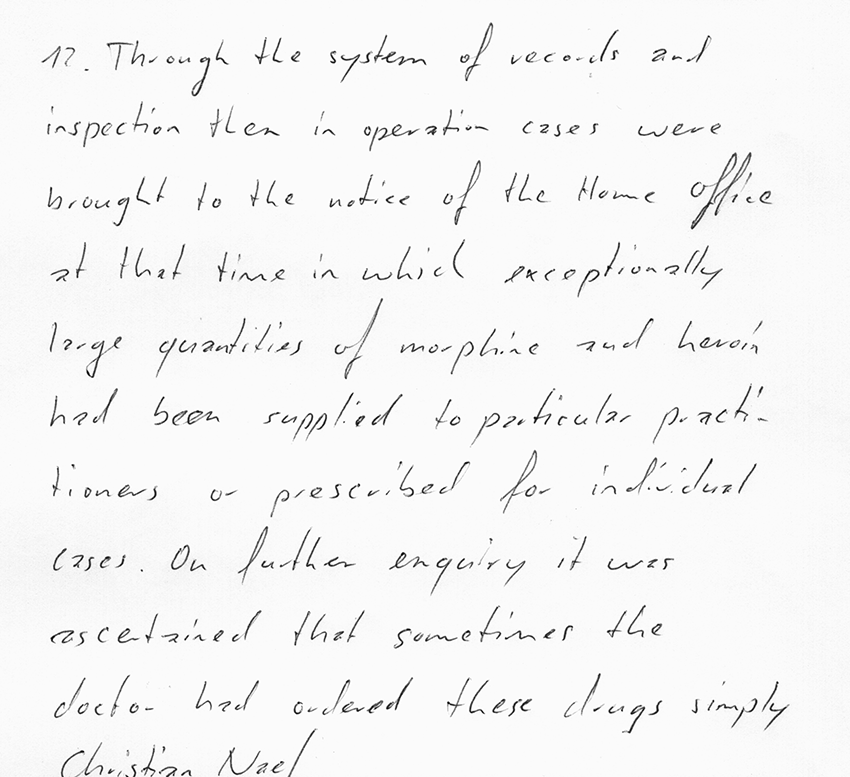 12. Through the system of records and
inspection then in operation cases were
brought to the notice of the Home Office
at that time in which exceptionally
large quantities of morphine and heroin
had been supplied to particular practi-
tioners or prescribed for individual
cases. On further enquiry it was
ascertained that sometimes the
doctor had ordered these drugs simply
Christian Nael